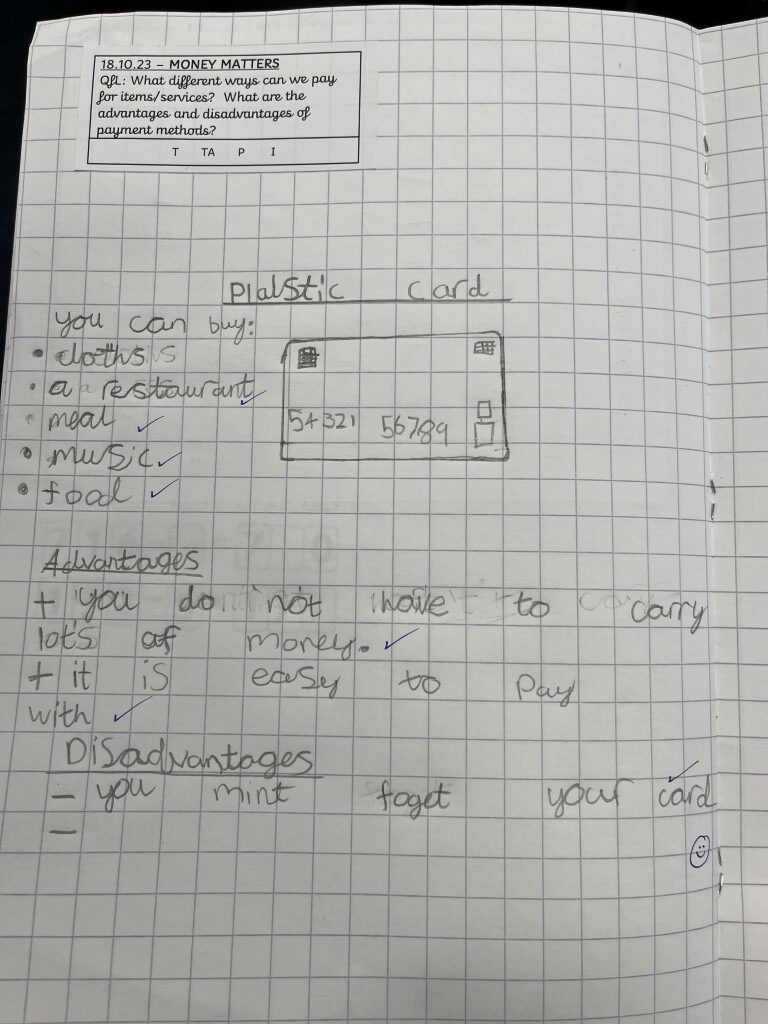 18.10.23 – MONEY MATTERS
QfL: What different ways can we pay
for items/services? What are the
advantages and disadvantages of
payment methods?
T TA P I
Plalstic card
you can buy:
• cloths
• a restaurant
• meal
• music
• food
54321 56789
Advantages
+ you do not have to carry
lots of money.
+ it is easy to pay
with
Disadvantages
– you mint foget your card
–